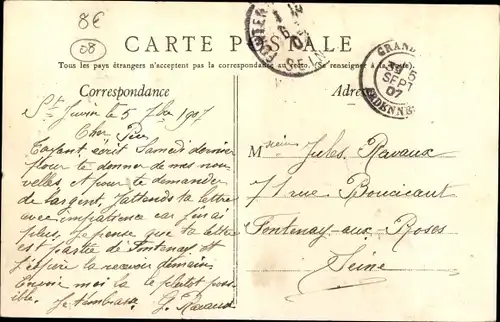 8€
08
CARTE POSTALE
Tous les pays étrangers n'acceptent pas la correspondance au recto. (Se renseigner à la Poste).
Correspondance
Adresse
GRAND
5
SEPT
07
ARDENNES
St Juvin le 5 7bre 1907
Cher Père
T'ayant écrit Samedi dernier
pour te donner de mes nou-
velles. Et pour te demander
de l'argent. J'attends ta lettre
avec impatience car j'en ai
plus. Je pense que ta lettre
est partie de Fontenay et
j'espère la recevoir demain.
Envoie moi la le plutôt poss
ible. Je t'embrasse G. Ravaux
Monsieur Jules Ravaux
71 rue Boucicaut
Fontenay-aux-Roses
Seine